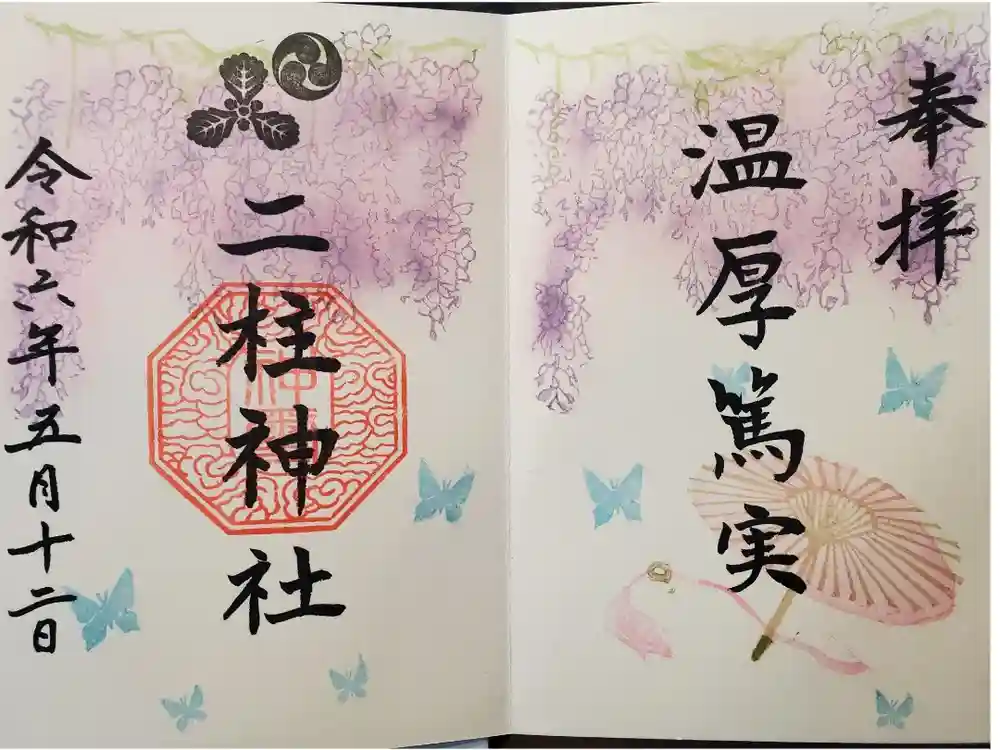 奉拝
温厚篤実
二柱神社
令和六年五月十二日